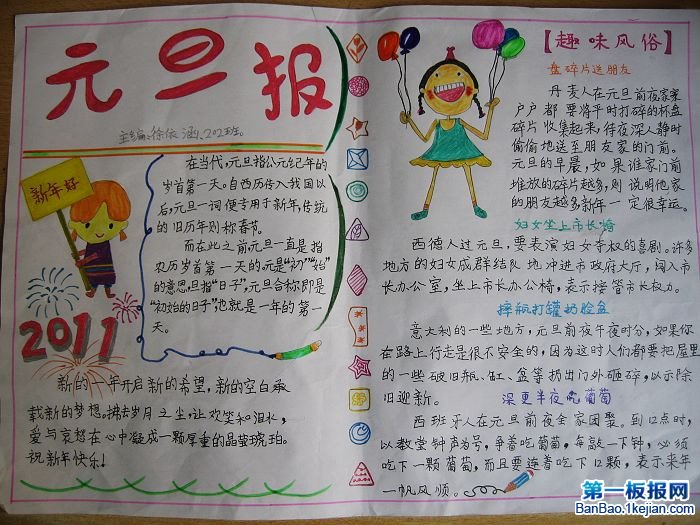 元旦报
主编:徐依涵、202班。
新年好
2011
在当代,元旦指公元纪年的
岁首第一天。自西历传入我国以
后,元旦一词便专用于新年,传统
的旧历年则称春节。
而在此之前元旦一直是指
农历岁首第一天的。元是“初”“始”
的意思,旦指“日子”,元旦合称即是
“初始的日子”也就是一年的第一
天。
新的一年开启新的希望,新的空白承
载新的梦想。拂去岁月之尘,让欢笑和泪水,
爱与哀愁在心中凝成一颗厚重的晶莹琥珀。
祝新年快乐!
【趣味风俗】
盘碎片送朋友
丹麦人在元旦前夜家家
户户都要将平时打碎的杯盘
碎片收集起来,待夜深人静时
偷偷地送至朋友家的门前。
元旦的早晨,如果谁家门前
堆放的碎片越多,则说明他家
的朋友越多新年一定很幸运。
妇女坐上市长椅
西德人过元旦,要表演妇女夺权的喜剧。许多
地方的妇女成群结队地冲进市政府大厅,闯入市
长办公室,坐上市长办公椅,表示接管市长权力。
摔瓶打罐扔脸盆
意大利的一些地方,元旦前夜午夜时分,如果你
在路上行走是很不安全的,因为这时人们都要把屋里
的一些破旧瓶、缸、盆等扔出门外砸碎,以示除
旧迎新。
深更半夜吃葡萄
西班牙人在元旦前夜全家团聚。到12点时,
以教堂钟声为号,争着吃葡萄,每敲一下钟,必须
吃下一颗葡萄,而且要连着吃下12颗,表示来年
一帆风顺。
第一板报网
BanBao.1kejian.com